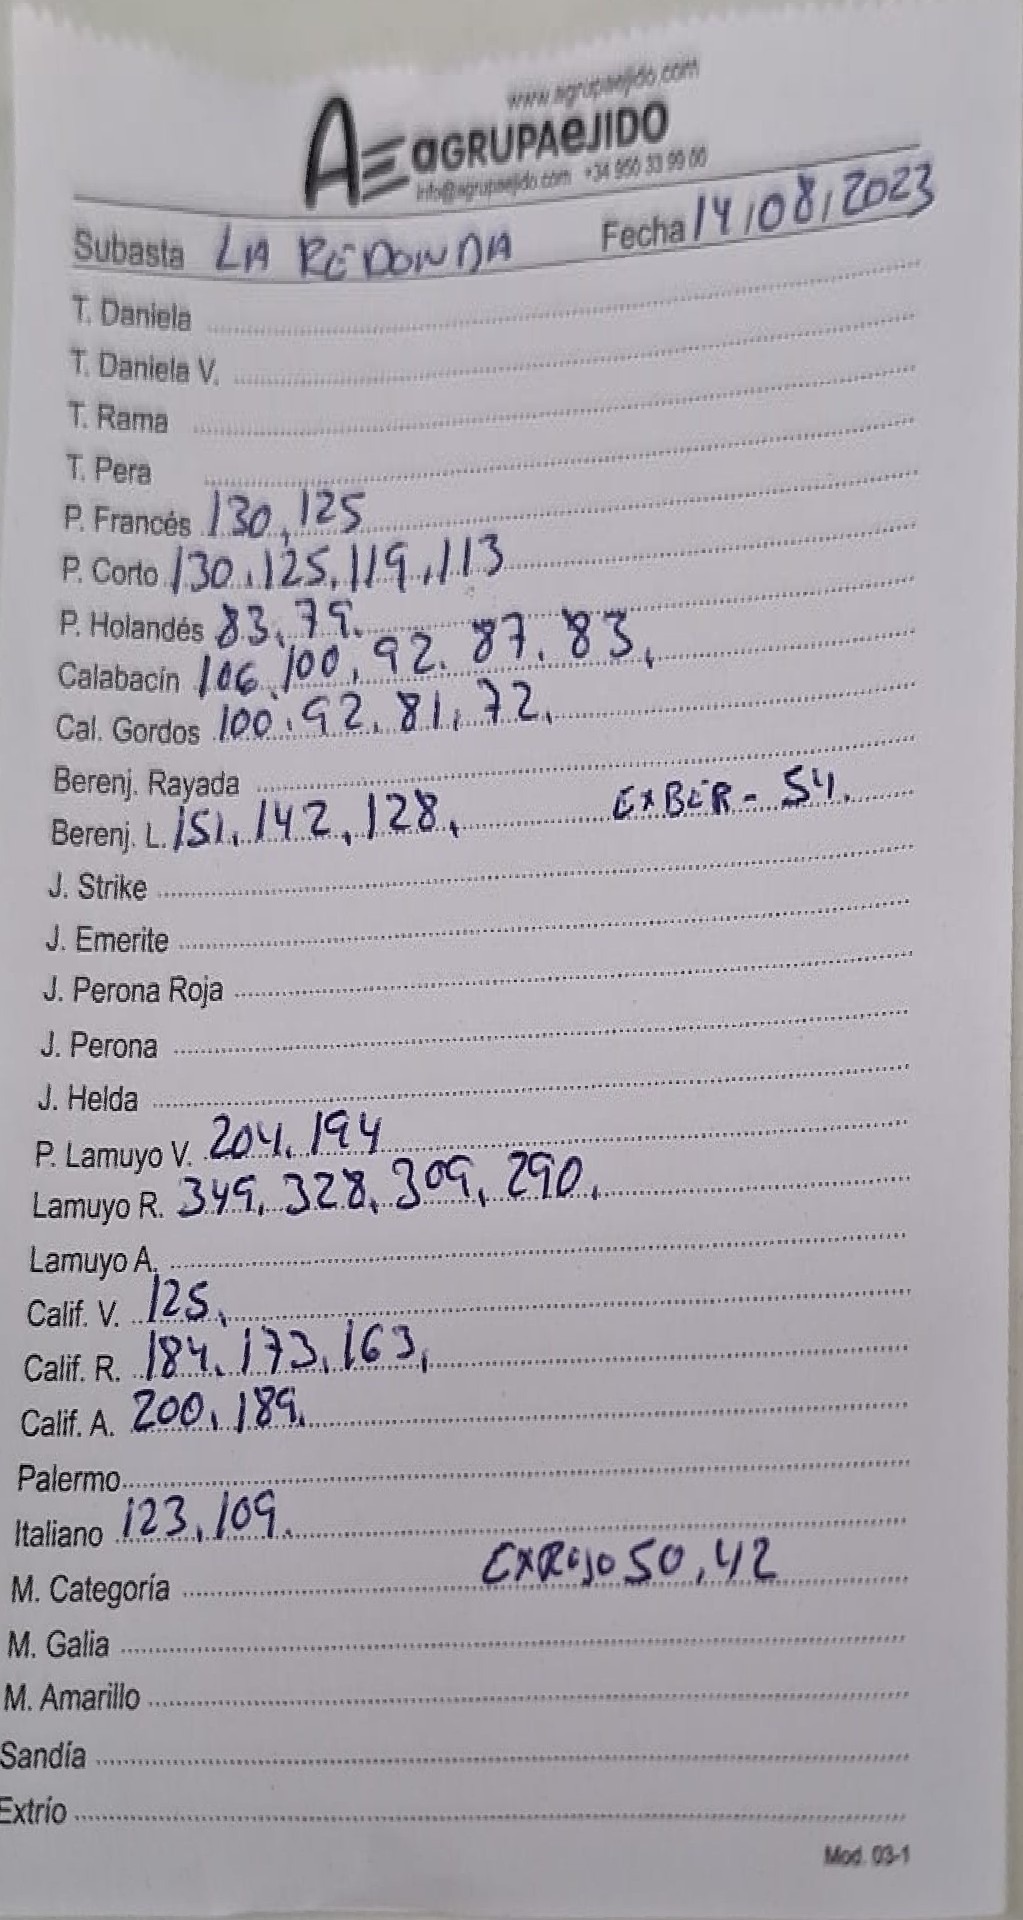 www.agrupaejido.com
AE aGRUPAeJIDO
info@agrupaejido.com +34 950 33 99 00
Subasta LA REDONDA Fecha 14/08/2023
T. Daniela
T. Daniela V.
T. Rama
T. Pera
P. Francés 130, 125
P. Corto 130, 125, 119, 113
P. Holandés 83, 79.
Calabacín 106, 100, 92, 87, 83,
Cal. Gordos 100, 92, 81, 72,
Berenj. Rayada
Berenj. L. 151, 142, 128, EXBER - 54.
J. Strike
J. Emerite
J. Perona Roja
J. Perona
J. Helda
P. Lamuyo V. 204, 194
Lamuyo R. 349, 328, 309, 290,
Lamuyo A.
Calif. V. 125,
Calif. R. 184, 173, 163,
Calif. A. 200, 189,
Palermo
Italiano 123, 109,
M. Categoría EXROJO 50, 42
M. Galia
M. Amarillo
Sandía
Extrío
Mod. 03-1